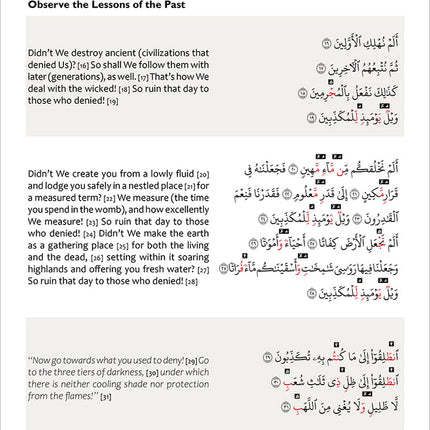 Observe the Lessons of the Past
Didn't We destroy ancient (civilizations that
denied Us)? [16] So shall We follow them with
later (generations), as well. [17] That's how We
deal with the wicked! [18] So ruin that day to
those who denied! [19]
أَلَمْ نُهْلِكِ ٱلْأَوَّلِينَ ١٦
ثُمَّ نُتْبِعُهُمُ ٱلْآخِرِينَ ١٧
كَذَٰلِكَ نَفْعَلُ بِٱلْمُجْرِمِينَ ١٨
وَيْلٌ يَوْمَئِذٍ لِّلْمُكَذِّبِينَ ١٩
Didn't We create you from a lowly fluid [20]
and lodge you safely in a nestled place [21] for
a measured term? [22] We measure (the time
you spend in the womb), and how excellently
We measure! [23] So ruin that day to those
who denied! [24] Didn't We make the earth
as a gathering place [25] for both the living
and the dead, [26] setting within it soaring
highlands and offering you fresh water? [27]
So ruin that day to those who denied! [28]
أَلَمْ نَخْلُقكُّم مِّن مَّآءٍ مَّهِينٍ ٢٠ فَجَعَلْنَٰهُ فِى
قَرَارٍ مَّكِينٍ ٢١ إِلَىٰ قَدَرٍ مَّعْلُومٍ ٢٢ فَقَدَرْنَا فَنِعْمَ
ٱلْقَٰدِرُونَ ٢٣ وَيْلٌ يَوْمَئِذٍ لِّلْمُكَذِّبِينَ ٢٤
أَلَمْ نَجْعَلِ ٱلْأَرْضَ كِفَاتًا ٢٥ أَحْيَآءً وَأَمْوَٰتًا ٢٦
وَجَعَلْنَا فِيهَا رَوَٰسِىَ شَٰمِخَٰتٍ وَأَسْقَيْنَٰكُم مَّآءً فُرَاتًا ٢٧
وَيْلٌ يَوْمَئِذٍ لِّلْمُكَذِّبِينَ ٢٨
"Now go towards what you used to deny! [29] Go
to the three tiers of darkness, [30] under which
there is neither cooling shade nor protection
from the flames!" [31]
ٱنطَلِقُوٓا۟ إِلَىٰ مَا كُنتُم بِهِۦ تُكَذِّبُونَ ٢٩
ٱنطَلِقُوٓا۟ إِلَىٰ ظِلٍّ ذِى ثَلَٰثِ شُعَبٍ ٣٠
لَّا ظَلِيلٍ وَلَا يُغْنِى مِنَ ٱللَّهَبِ ٣١